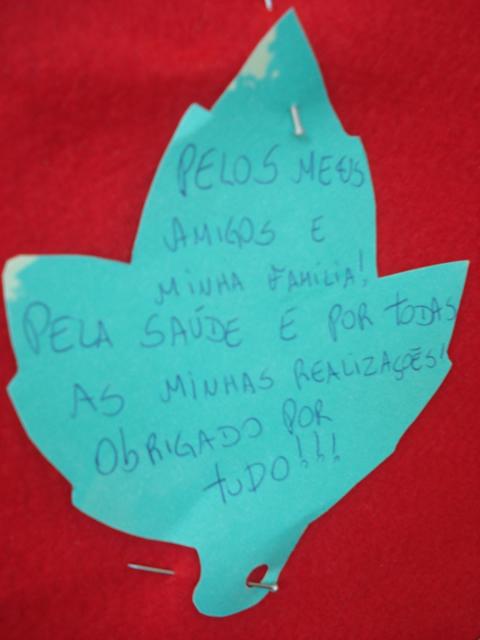 PELOS MEUS
AMIGOS E
MINHA FAMÍLIA!
PELA SAÚDE E POR TODAS
AS MINHAS REALIZAÇÕES!
ObRIGADO POR
TUDO!!!